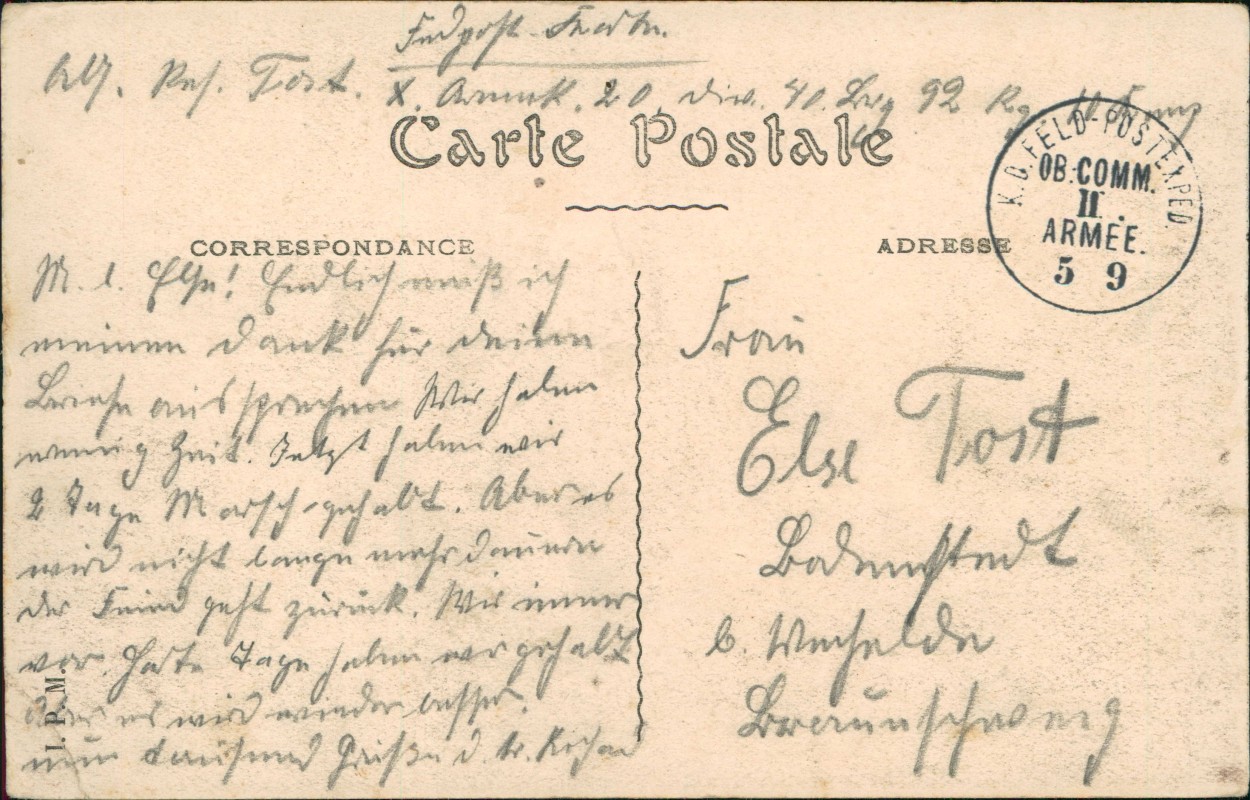 Feldpost-Karte.
Abs. Res. Tost.
X. Armeek. 20. Div. 40. Brg 92 Rg
Carte Postale
K. D. FELD-POSTEXPED.
OB. COMM.
II.
ARMEE.
5 9
CORRESPONDANCE
ADRESSE
M. l. Else! Endlich muß ich
meinen Dank für deine
Briefe aussprechen Wir haben
wenig Zeit. Jetzt haben wir
2 Tage Marsch gehabt. Aber es
wird nicht lange mehr dauern
der Feind geht zurück. Wir immer
vor. Harte Tage haben wir gehabt
Aber es wird wieder besser.
nun tausend Grüße d. tr. Richard
I. P. M.
Frau
Else Tost
Bodenstedt
b. Vechelde
Braunschweig